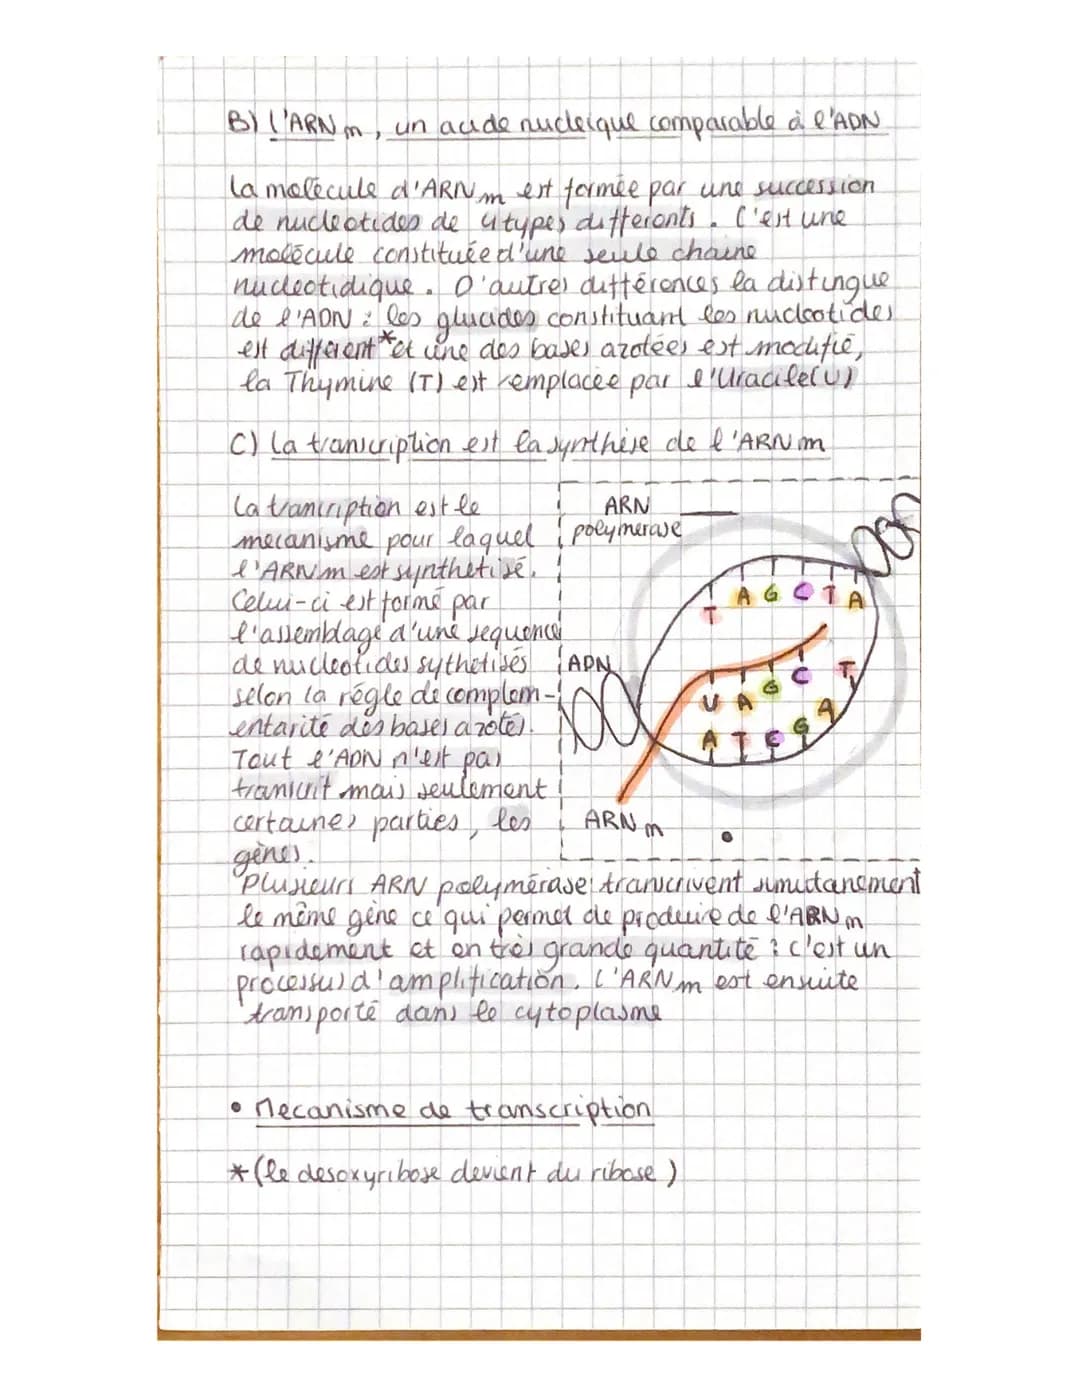 B) L'ARN m, un acide nucleique comparable à l'ADN
La molécule d'ARN m est formée par une succession
de nucleotides de 4 types differents. C'est une
molécule constituée d'une seule chaine
nucleotidique. D'autres différences la distingue
de l'ADN : les glucides constituant les nucleotides
est different * et une des bases azotées est modifié,
la Thymine (T) est remplacée par l'Uracile (U)
C) La transcription est la synthèse de l'ARN m
La trancription est le
mecanisme pour laquel
l'ARN m est synthetisé.
Celui-ci est formé par
l'assemblage d'une sequence
de nucleotides sythetisés
selon la régle de complem-
entarité des bases azotés.
Tout l'ADN n'est pas
transcrit mais seulement
certaines parties, les
gènes.
ARN
polymerase
T A G C T A
ADN
U A G C T
A T C G A
ARN m
•
Plusieurs ARN polymérase transcrivent simultanement
le même gène ce qui permet de produire de l'ARN m
rapidement et en très grande quantité : c'est un
processus d'amplification. L'ARN m est ensuite
transporté dans le cytoplasme
• Mecanisme de transcription
* (le desoxyribose devient du ribose)